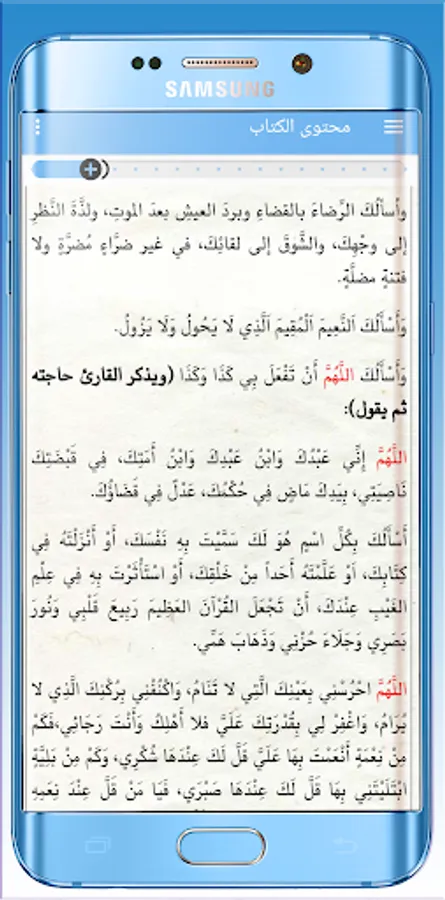 SAMSUNG
محتوى الكتاب
وأسألُكَ الرَّضاءَ بالقضاءِ وبردَ العيشِ بعدَ الموتِ، ولذَّةَ النَّظرِ
إلى وجْهِكَ، والشَّوقَ إلى لقائِكَ، في غير ضرَّاءٍ مُضرَّةٍ ولا
فتنةٍ مضلَّةٍ.
وَأَسْأَلُكَ اَلنَّعِيمَ اَلْمُقِيمَ اَلَّذِي لَا يَحُولُ وَلَا يَزُولُ.
وَأَسْأَلُكَ اللَّهُمَّ أَنْ تَفْعَلَ بِي كَذَا وَكَذَا (ويذكر القارئ حاجته
ثم يقول):
اللَّهُمَّ إِنِّي عَبْدُكَ وَابْنُ عَبْدِكَ وَابْنُ أَمَتِكَ، فِي قَبْضَتِكَ
نَاصِيَتِي، بِيَدِكَ مَاضٍ فِي حُكْمُكَ، عَدْلٌ فِي قَضَاؤُكَ.
أَسْأَلُكَ بِكُلِّ اسْمٍ هُوَ لَكَ سَمَّيْتَ بِهِ نَفْسَكَ، أَوْ أَنْزَلْتَهُ فِي
كِتَابِكَ، اَوْ عَلَّمْتَهُ أَحَداً مِنْ خَلْقِكَ، أَوْ اسْتَأْثَرْتَ بِهِ فِي عِلْمِ
الغَيْبِ عِنْدَكَ، أَنْ تَجْعَلَ القُرْآنَ العَظِيمَ رَبِيعَ قَلْبِي وَنُورَ
بَصَرِي وَجَلَاءَ حُزْنِي وَذَهَابَ هَمِّي.
اللَّهُمَّ احْرُسْنِي بِعَيْنِكَ الَّتِي لا تَنَامُ، وَاكْنُفْنِي بِرُكْنِكَ الَّذِي لا
يُرَامُ، وَاغْفِرْ لِي بِقُدْرَتِكَ عَلَيَّ فلا أَهْلِكُ وَأَنْتَ رَجَائِي،فَكَمْ
مِنْ نِعْمَةٍ أَنْعَمْتَ بِهَا عَلَيَّ قَلَّ لَكَ عِنْدَهَا شُكْرِي، وَكَمْ مِنْ بَلِيَّةٍ
ابْتَلَيْتَنِي بِهَا قَلَّ لَكَ عِنْدَهَا صَبْرِي، فَيَا مَنْ قَلَّ عِنْدَ نِعَمِهِ